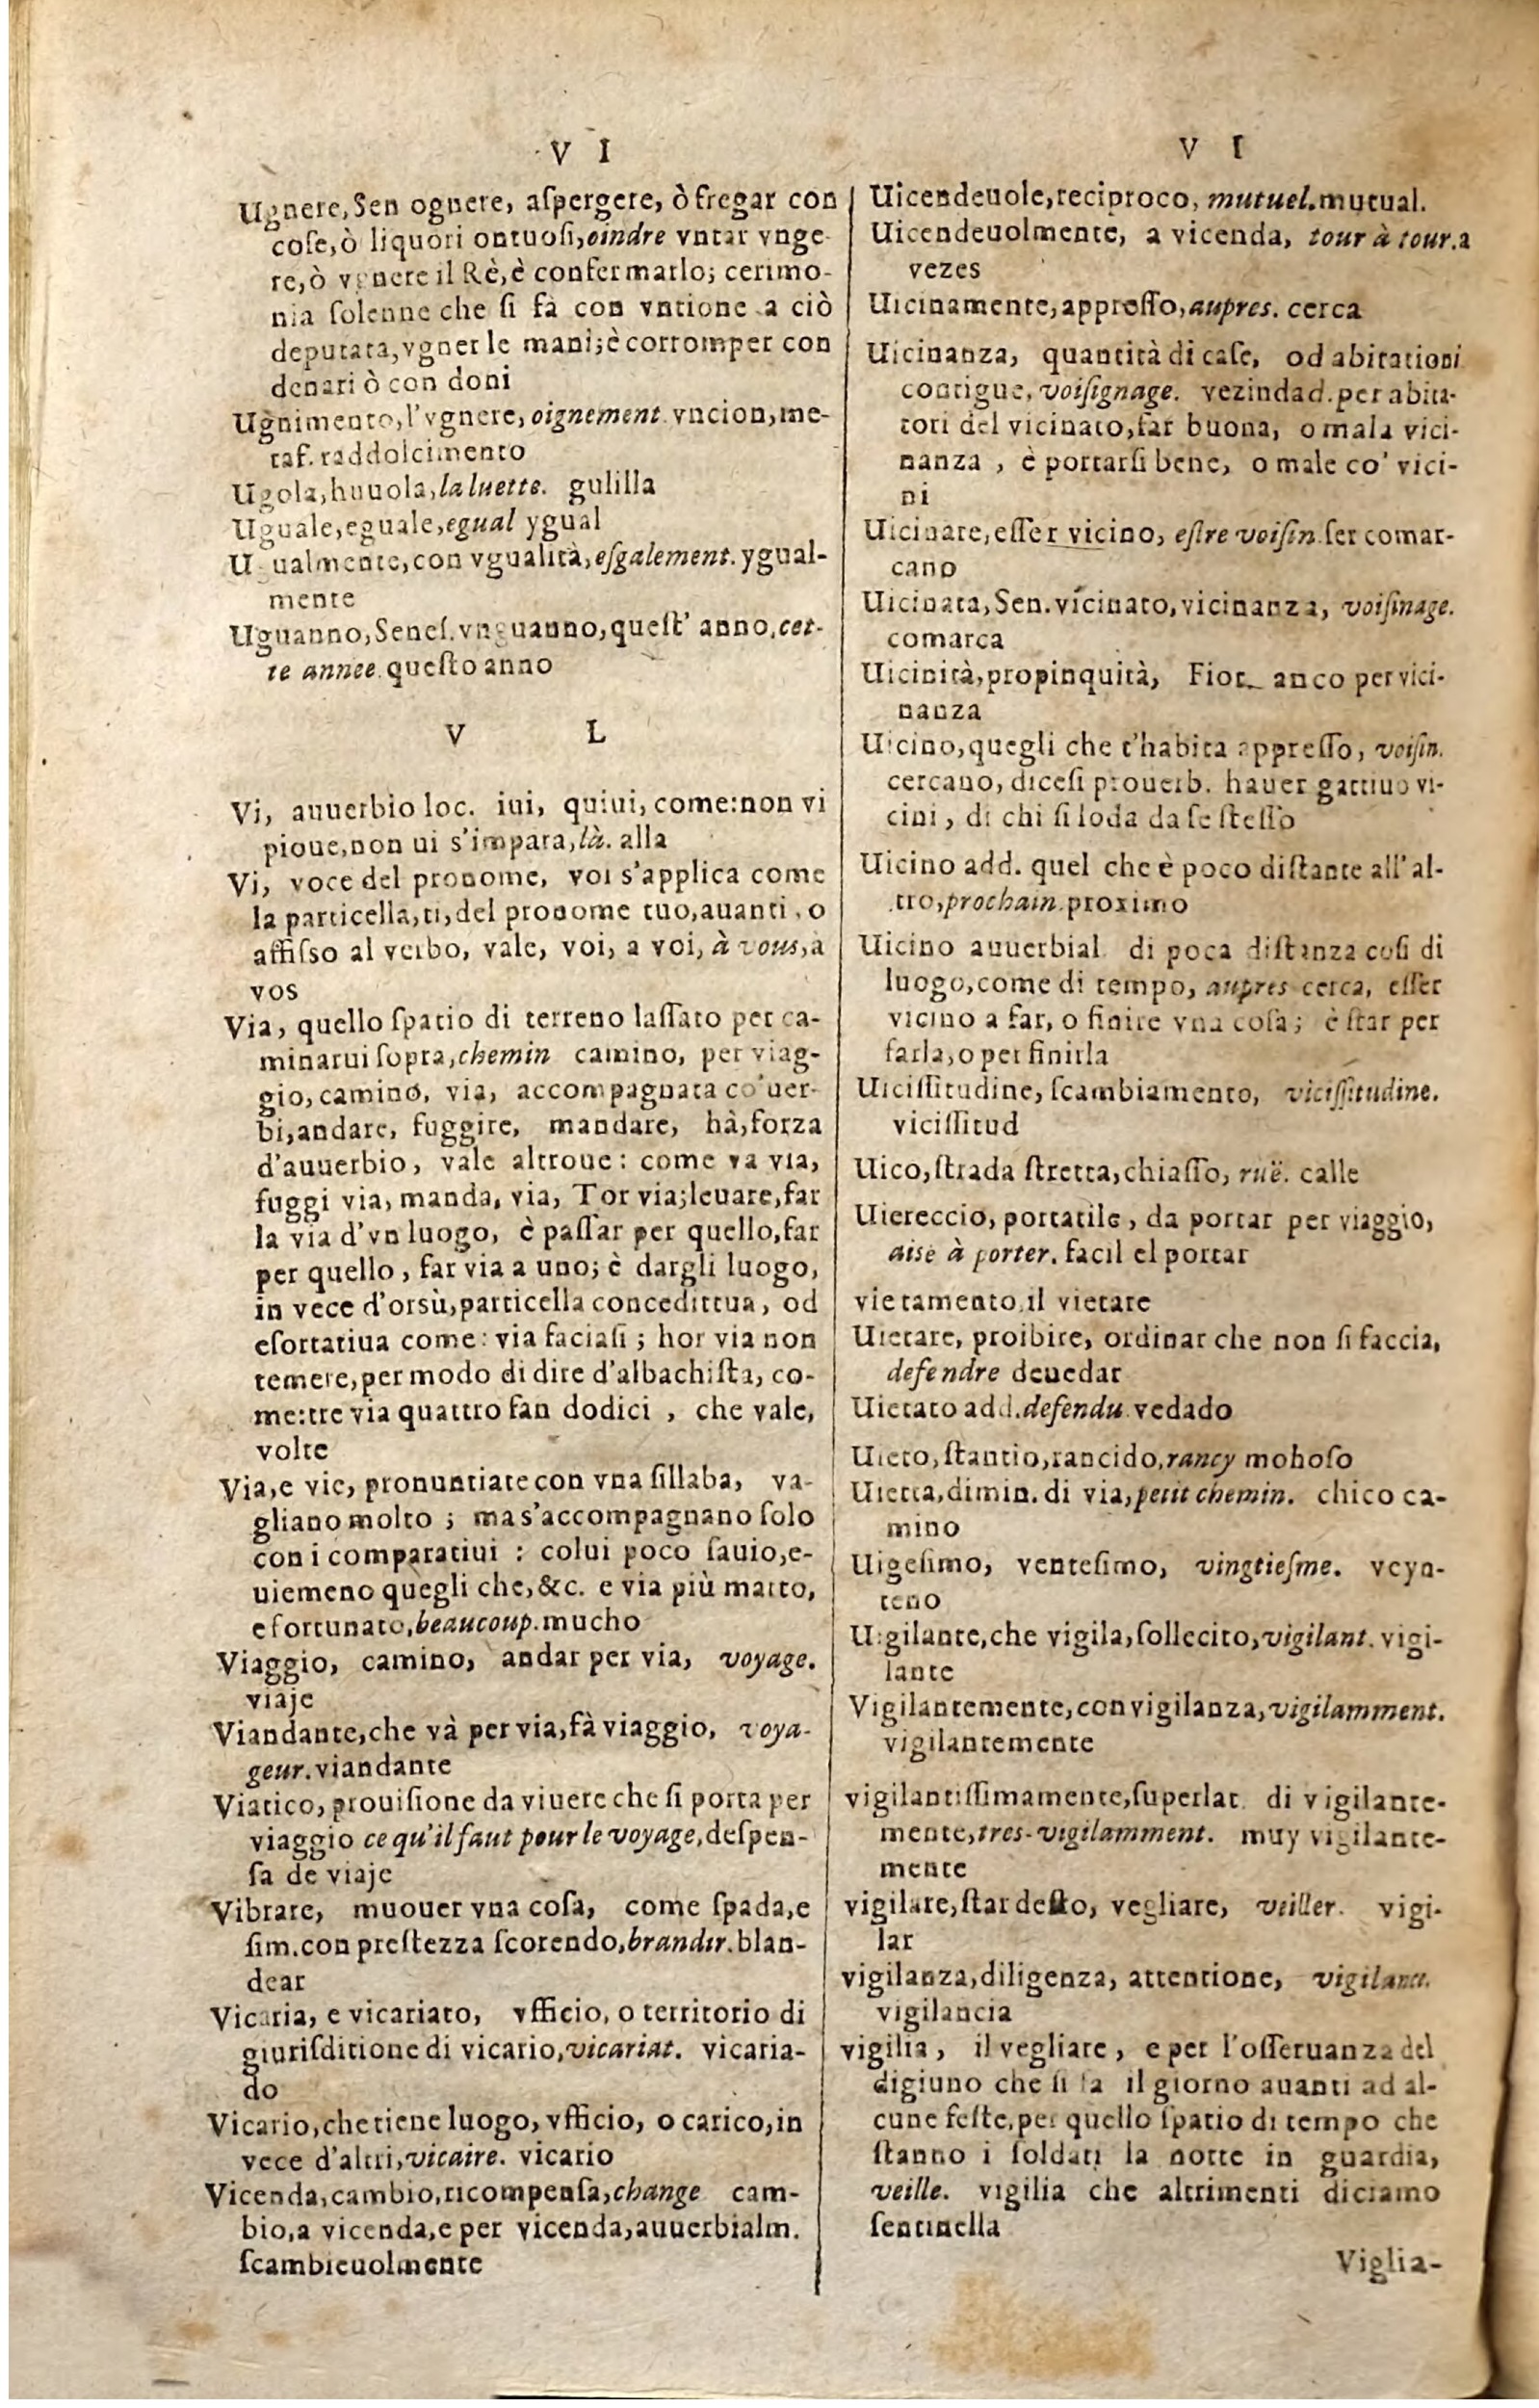 V I
Ugnere, Sen ognere, aſpergere, ò fregar con
coſe, ò liquori ontuoſi, oindre vntar vnge
re, ò vgnere il Rè, è confermarlo; cerimo-
nia ſolenne che ſi fa con vntione a ciò
deputata, vgner le mani; è corromper con
denari ò con doni
Ugnimento, l'vgnere, oignement. vncion, me-
taf. raddolcimento
Ugola, huuola, la luette. gulilla
Uguale, eguale, egual ygual
Ugualmente, con vgualità, eſgalement. ygual-
mente
Uguanno, Seneſ. vnguanno, queſt' anno, cet-
te annee. queſto anno
V L
Vi, auuerbio loc. iui, quiui, come: non vi
pioue, non ui s'impara, là. alla
Vi, voce del pronome, voi s'applica come
la particella, ti, del pronome tuo, auanti, o
affiſso al verbo, vale, voi, a voi, à vous, a
vos
Via, quello ſpatio di terreno laſſato per ca-
minarui ſopra, chemin camino, per viag-
gio, camino, via, accompagnata co'uer-
bi, andare, fuggire, mandare, hà, forza
d'auuerbio, vale altroue: come va via,
fuggi via, manda, via, Tor via; leuare, far
la via d'vn luogo, è paſſar per quello, far
per quello, far via a uno; è dargli luogo,
in vece d'orsù, particella concedittua, od
eſortatiua come: via faciaſi; hor via non
temere, per modo di dire d'albachiſta, co-
me: tre via quattro fan dodici, che vale,
volte
Via, e vie, pronuntiate con vna ſillaba, va-
gliano molto; ma s'accompagnano ſolo
con i comparatiui: colui poco ſauio, e-
uiemeno quegli che, &c. e via più matto,
e fortunato, beaucoup. mucho
Viaggio, camino, andar per via, voyage.
viaje
Viandante, che và per via, fà viaggio, voya-
geur. viandante
Viatico, prouiſione da viuere che ſi porta per
viaggio ce qu'il faut pour le voyage, deſpen-
ſa de viaje
Vibrare, muouer vna coſa, come ſpada, e
ſim. con preſtezza ſcorendo, brandir. blan-
dear
Vicaria, e vicariato, vfficio, o territorio di
giuriſditione di vicario, vicariat. vicaria-
do
Vicario, che tiene luogo, vfficio, o carico, in
vece d'altri, vicaire. vicario
Vicenda, cambio, ricompenſa, change cam-
bio, a vicenda, e per vicenda, auuerbialm.
ſcambieuolmente
V I
Uicendeuole, reciproco, mutuel. mutual.
Uicendeuolmente, a vicenda, tour à tour. a
vezes
Uicinamente, appreſſo, aupres. cerca
Uicinanza, quantità di caſe, od abitationi
contigue, voiſignage. vezindad. per abita-
tori del vicinato, far buona, o mala vici-
nanza, è portarſi bene, o male co' vici-
ni
Uicinare, eſſer vicino, eſtre voiſin. ſer comar-
cano
Uicinata, Sen. vicinato, vicinanza, voiſinage.
comarca
Uicinità, propinquità, Fior. anco per vici-
nanza
Uicino, quegli che t'habita appreſſo, voiſin.
cercano, diceſi prouerb. hauer gattiuo vi-
cini, di chi ſi loda da ſe ſteſſo
Uicino add. quel che è poco diſtante all'al-
tro, prochain. proximo
Uicino auuerbial di poca diſtanza coſi di
luogo, come di tempo, aupres cerca, eſſer
vicino a far, o finire vna coſa; è ſtar per
farla, o per finirla
Uiciſſitudine, ſcambiamento, viciſſitudine.
viciſſitud
Uico, ſtrada ſtretta, chiaſſo, ruë. calle
Uiereccio, portatile, da portar per viaggio,
aisè à porter. facil el portar
vietamento, il vietare
Uietare, proibire, ordinar che non ſi faccia,
defendre deuedar
Uietato add. defendu. vedado
Uieto, ſtantio, rancido, rancy mohoſo
Uietta, dimin. di via, petit chemin. chico ca-
mino
Uigeſimo, venteſimo, vingtieſme. veyn-
teno
Uigilante, che vigila, ſollecito, vigilant. vigi-
lante
Vigilantemente, con vigilanza, vigilamment.
vigilantemente
vigilantiſſimamente, ſuperlat. di vigilante-
mente, tres-vigilamment. muy vigilante-
mente
vigilare, ſtar deſto, vegliare, veiller. vigi-
lar
vigilanza, diligenza, attentione, vigilance.
vigilancia
vigilia, il vegliare, e per l'oſſeruanza del
digiuno che ſi fa il giorno auanti ad al-
cune feſte, per quello ſpatio di tempo che
ſtanno i ſoldati la notte in guardia,
veille. vigilia che altrimenti diciamo
ſentinella
Viglia-